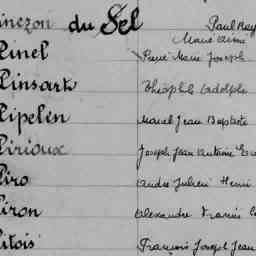 inezon du Sel Paul
Marie Aimé
Pinel René Marie Joseph
Pinsart Théophile Adolphe
Pipelen Marcel Jean Baptiste
Pirioux Joseph Jean Antoine
Piro André Julien Henri
Piron Alexandre Francis
Pitois François Joseph Jean